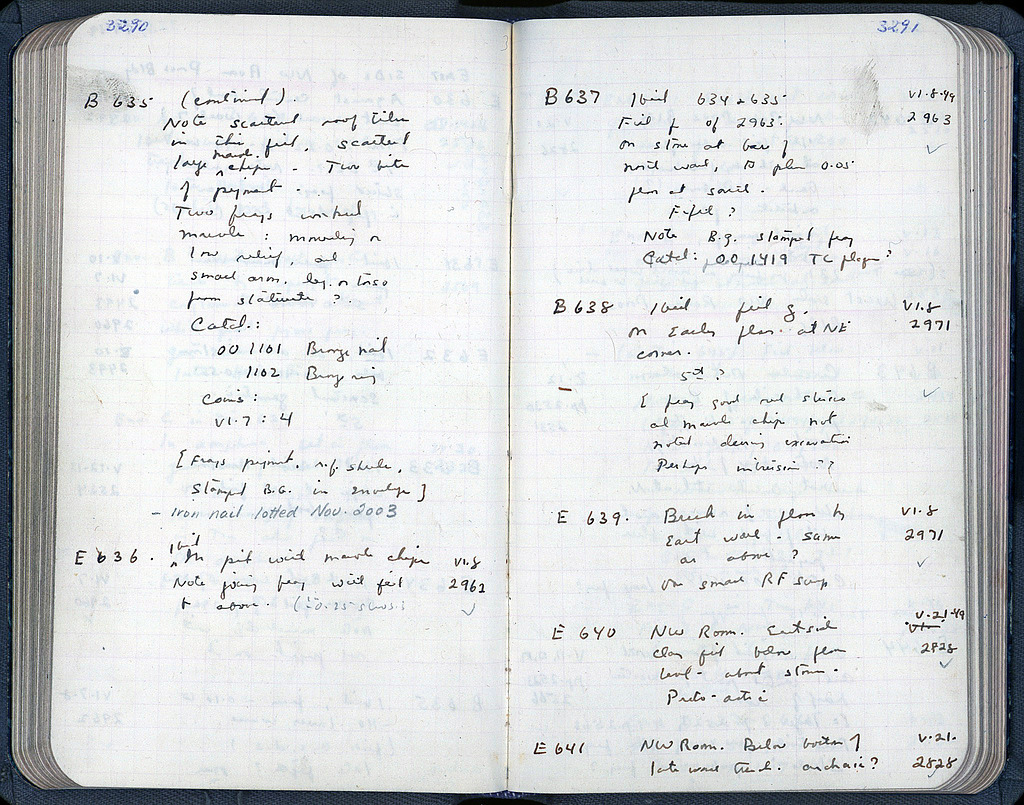 3290
B 635 (continued).
Note scattered roof tiles
in this fill, scattered
large marb. chips - Two bits
of pigment.
Two frags worked
marble : moulding or
low relief, and
small arm, leg, or torso
from statuette ?
Catd.:
OO 1101 Bronze nail
1102 Bronze ring
Coins :
VI.7 : 4
[Frags pigment
Stamped B.G. in envelope]
- Iron nail lotted Nov. 2003
E 636. Ibid In pit with marble chips VI.8
Note joining frag with fill 2962
above.
3291
B 637 Ibid 634 & 635 VI.8.49
Fill f of 2963: 2963
On stone at base of
north wall, to plus 0.05
floor at south.
F fill ?
Note B.g. stamped frag
Catd: OO 1419 TC plaque?
B 638 Ibid fill g. VI.8
on Earlier floor at NE 2971
corner.
5th ?
[ frag good red stucco
and marble chips not
noted during excavation
Perhaps intrusion ??
E 639. Break in floor by VI.8
East wall - same 2971
as above ?
One small RF scrap
E 640 NW Room. East side V.21.49
clay fill below floor 2828
level - about stone -
Proto-attic
E 641 NW Room. Below bottom of V.21.
late wall trench. archaic? 2828